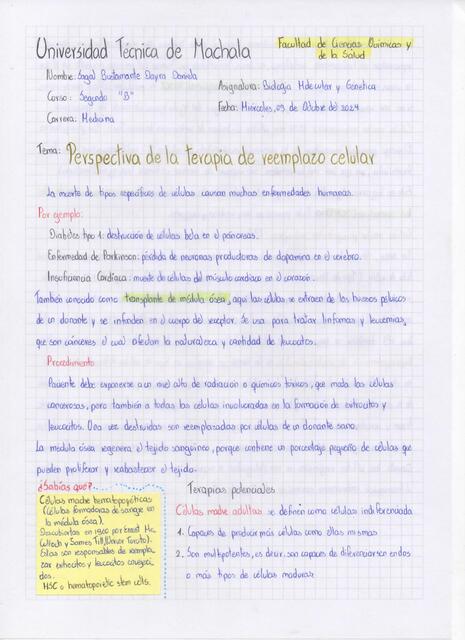 Universidad Técnica de Machala
Facultad de Ciencias Químicas y
de la Salud
Nombre: Sagal Bustamante Dayra Daniela
Asignatura: Biología Molecular y Genética
Curso: Segundo "B"
Fecha: Miércoles, 09 de Octubre del 2024
Carrera: Medicina
Tema: Perspectiva de la terapia de reemplazo celular
La muerte de tipos específicos de células causan muchas enfermedades humanas.
Por ejemplo:
Diabetes tipo 1: destrucción de células beta en el páncreas.
Enfermedad de Parkinson: pérdida de neuronas productoras de dopamina en el cerebro.
Insuficiencia Cardíaca: muerte de células del músculo cardíaco en el corazón.
También conocido como transplante de médula ósea, aquí las células se extraen de los huesos pélvicos
de un donante y se infunden en el cuerpo del receptor. Se usa para tratar linfomas y leucemias,
que son cánceres el cual afectan la naturaleza y cantidad de leucocitos.
Procedimiento
Paciente debe exponerse a un nivel alto de radiación o químicos tóxicos, que mata las células
cancerosas, pero también a todas las células involucradas en la formación de eritrocitos y
leucocitos. Una vez destruidas son reemplazadas por células de un donante sano.
La médula ósea regenera el tejido sanguíneo, porque contiene un porcentaje pequeño de células que
pueden proliferar y reabastecer el tejido.
¿Sabías que?
Células madre hematopoyéticas
(Células formadoras de sangre en
la médula ósea).
Descubiertas en 1960 por Ernest Mc
Culloch y James Till (Univer Toronto).
Ellas son responsables de reempla_
zar eritrocitos y leucocitos envejeci_
dos.
HSC o hematopoietic stem cells.
Terapias potenciales
Células madre adultas se definen como células indiferenciada
1. Capaces de producir más células como ellas mismas
2. Son multipotentes, es decir, son capaces de diferenciarse en dos
o más tipos de células maduras.